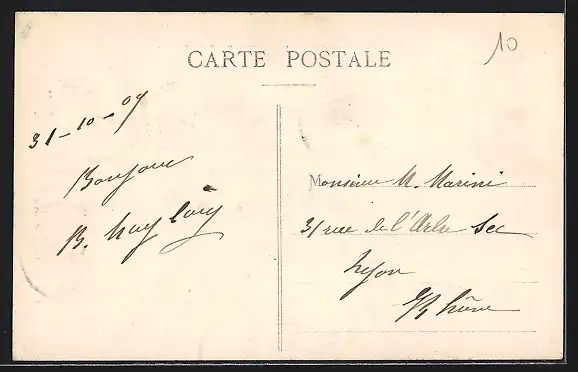 CARTE POSTALE
10
31-10-09
Bonjour
B.
Monsieur M. Marini
31 rue de l'Arbre Sec
Lyon
Rhône